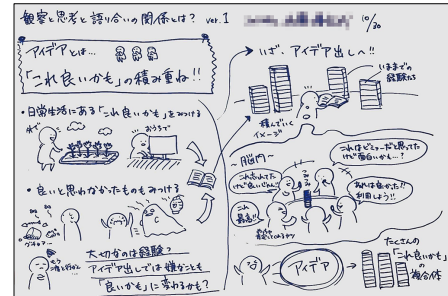 観察と思考と語り合いの関係とは? ver.1
10/30
アイデアとは…
「これ良いかも」の積み重ね!!
・日常生活にある「これ良いかも」をみつける
外で
おうちで
・良いと思わなかったものもみつける
大切なのは経験?
アイデア出しでは嫌なことも
「良いかも」に変わるかも?
いざ、アイデア出しへ!!
いままでの
経験たち
積んでいく
イメージ
〜脳内〜
これはビミョーだと思ってた
けど面白いかも…?
これ忘れてた
けど良いじゃん!!
あれは良かった!!
利用しよう!!
これ
最高!!
アイデア
たくさんの
「これ良いかも」
の複合体